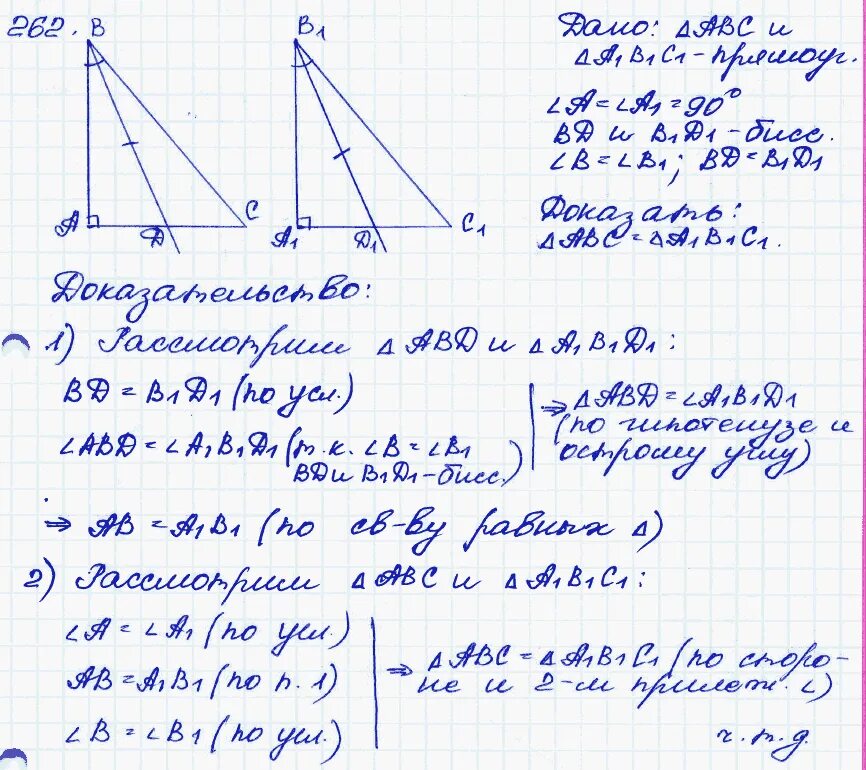 262.
B
B1
A
D
C
A1
D1
C1
Дано: ΔABC и
ΔA1B1C1-прямоуг.
∠A=∠A1=90°
BD и B1D1-бисс.
∠B=∠B1; BD=B1D1
Доказать:
ΔABC=ΔA1B1C1.
Доказательство:
1) Рассмотрим ΔABD и ΔA1B1D1:
BD=B1D1 (по усл.)
∠ABD=∠A1B1D1 (т.к. ∠B=∠B1
BD и B1D1-бисс.)
⇒ ΔABD=∠A1B1D1
(по гипотенузе и
острому углу)
⇒ AB=A1B1 (по св-ву равных Δ)
2) Рассмотрим ΔABC и ΔA1B1C1:
∠A=∠A1 (по усл.)
AB=A1B1 (по п.1)
∠B=∠B1 (по усл.)
⇒ ΔABC=ΔA1B1C1 (по сторо-
не и 2-м прилеж. ∠)
ч.т.д.